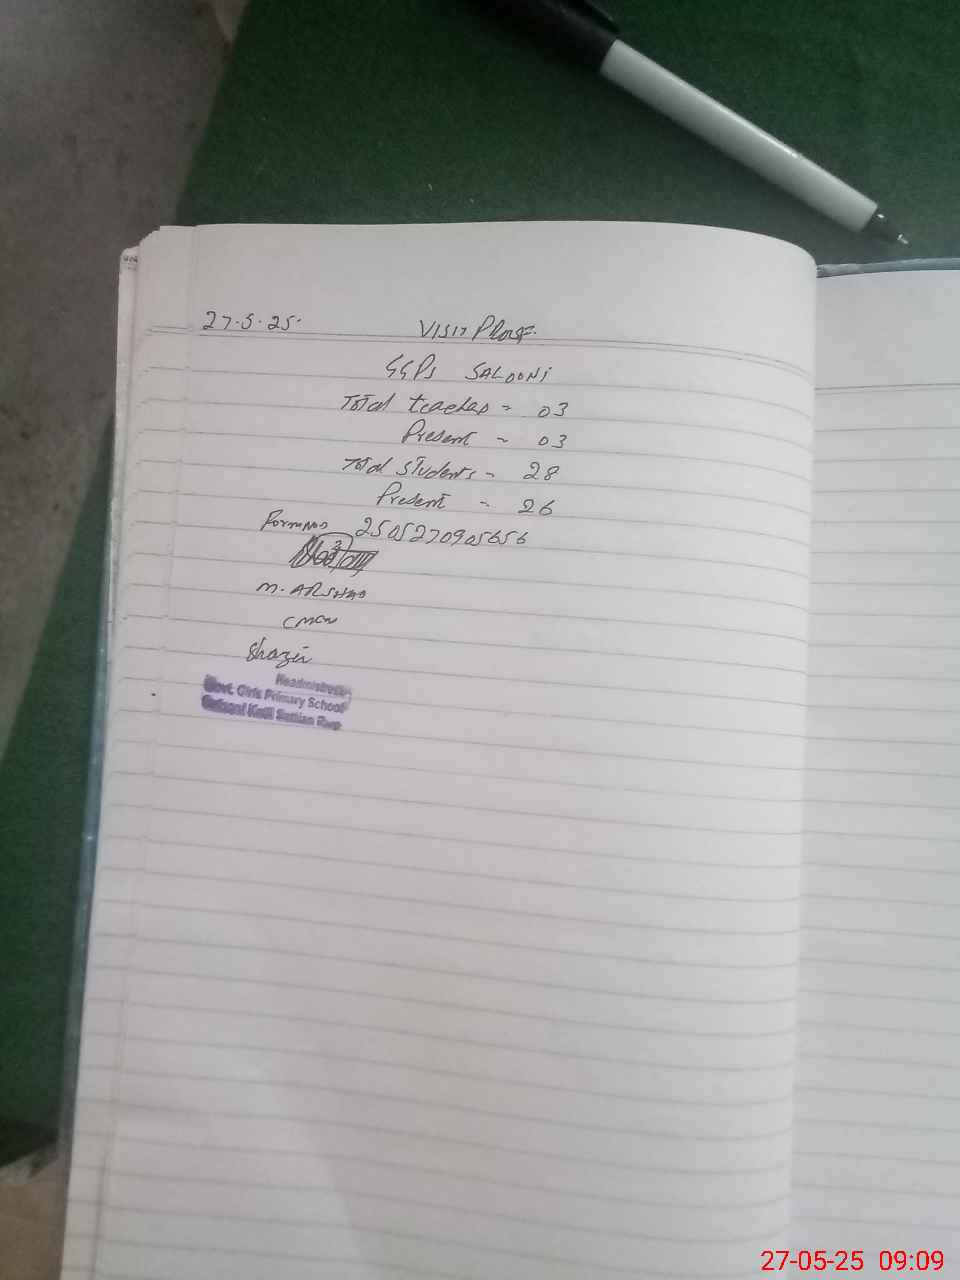 27.5.25. VISIT PROOF.
GGPS SALOONI
Total teacher = 03
Present = 03
Total students = 28
Present = 26
Form No 2505270905656
M. ARSHAD
Shazia
Headmistress
Govt. Girls Primary School
Kotli Sattian Rwp
27-05-25 09:09